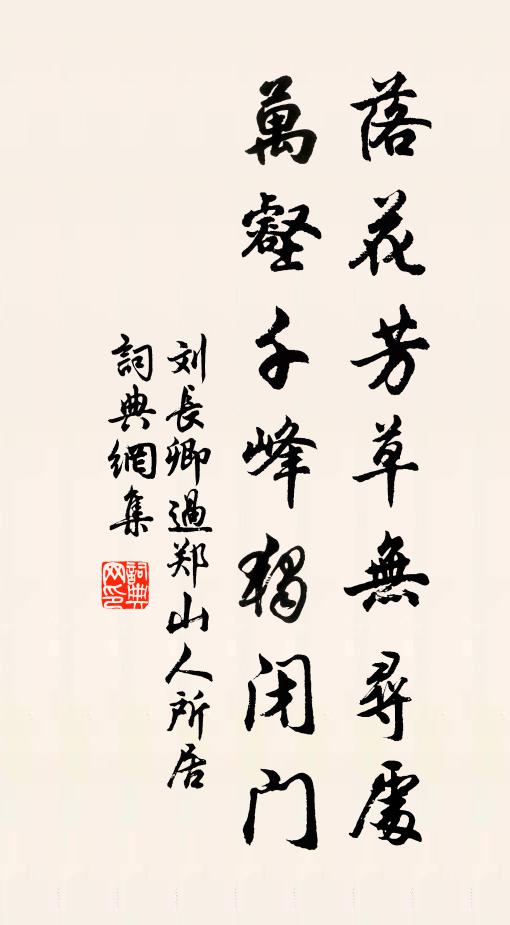 落花芳草無尋處
萬壑千峰獨闭门
刘長卿過郑山人所居
詞典網集
詞典
网印